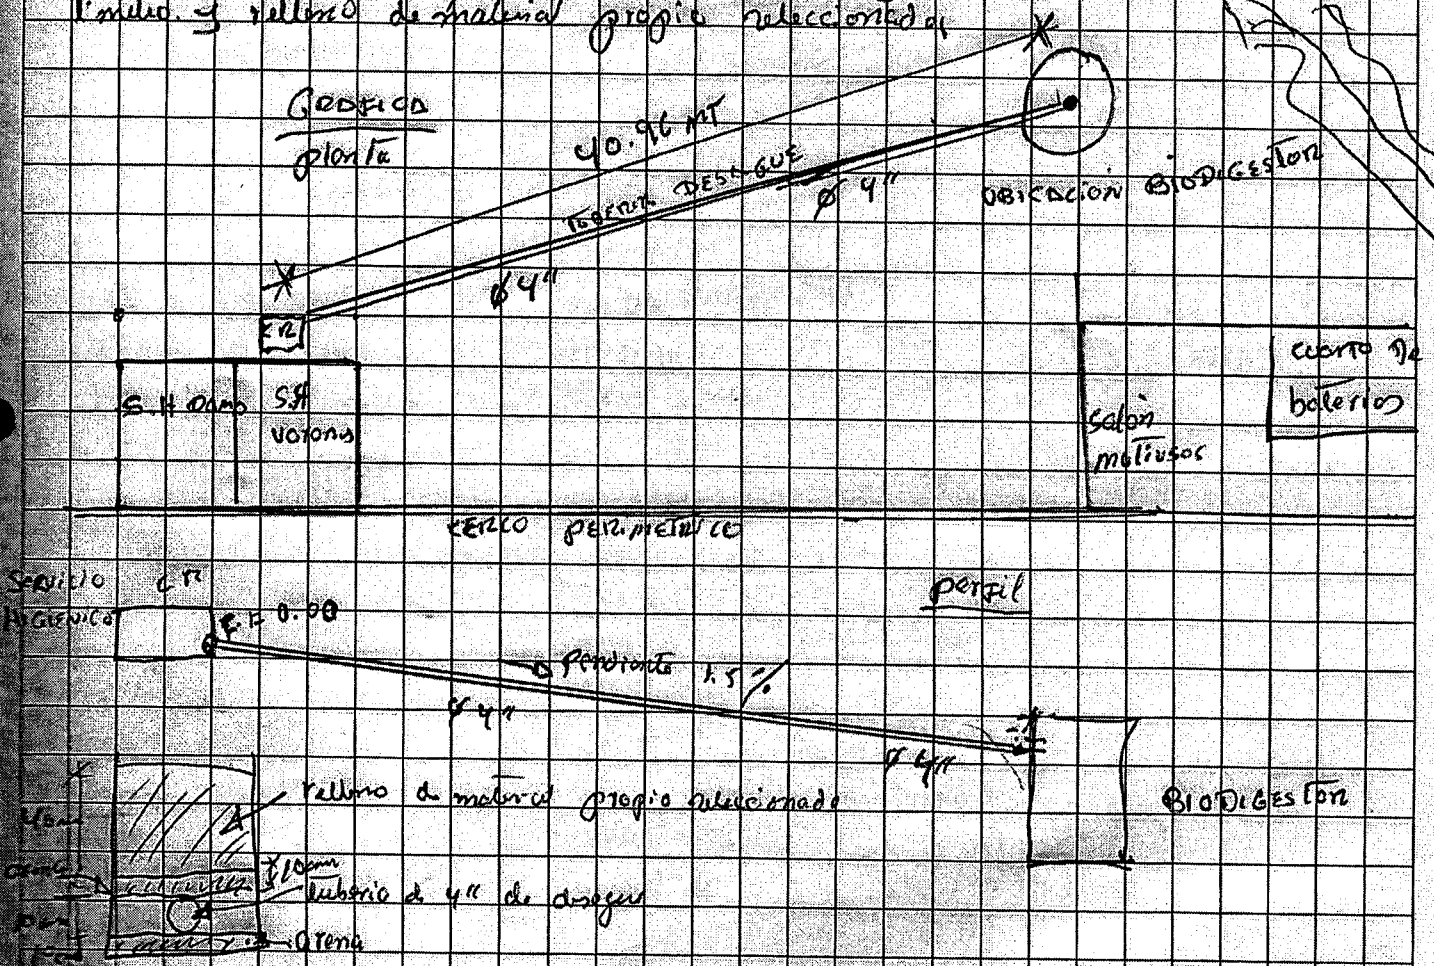 y relleno de material propio seleccionado
GRAFICA
planta
40.96 MT
TUBERIA DESAGUE
ø 4"
ø 4"
UBICACION BIODIGESTOR
CR
S.H Dama
S.H
varones
salon
multiusos
cuarto de
baterias
CERCO PERIMETRICO
SERVICIO
HIGIENICO
CR
0.00
perfil
Pendiente 1.5 %
ø 4"
ø 4"
BIODIGESTOR
relleno de material propio seleccionado
10cm
tuberia de 4" de desague
Arena